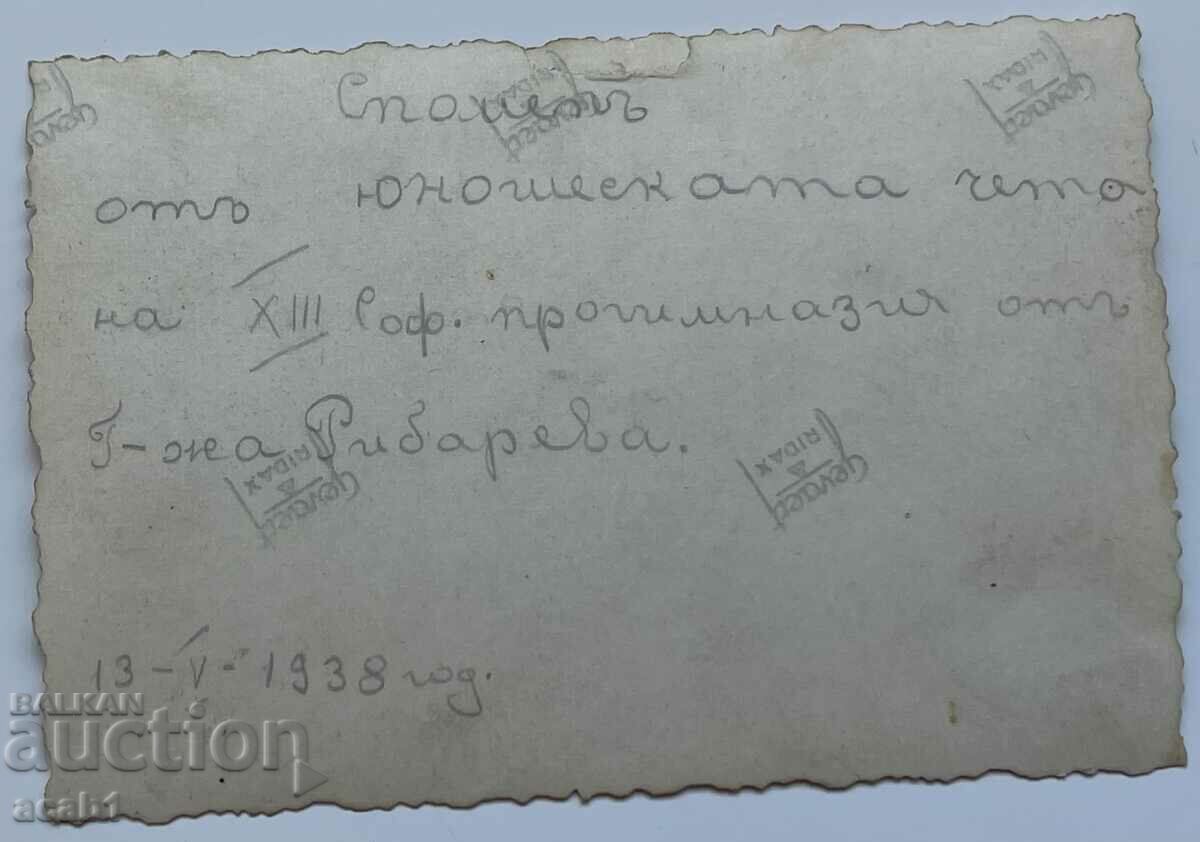 Споменъ
отъ юношеската чета
на XIII Соф. прогимназия отъ
Г-жа Рибарева.
13-V-1938 год.
Gevaert
RIDAX
Gevaert
RIDAX
Gevaert
RIDAX
Gevaert
RIDAX
BALKAN
auction
acab1